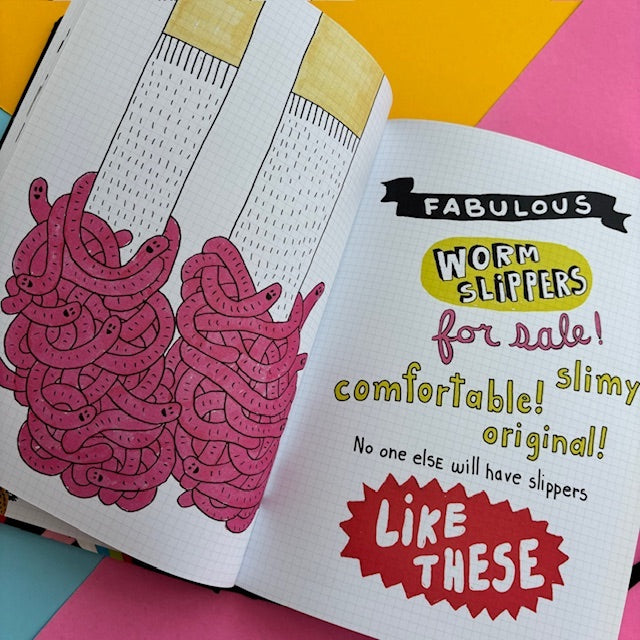 FABULOUS
WORM
SLIPPERS
for sale!
slimy
comfortable!
original!
No one else will have slippers
LiKE
THESE